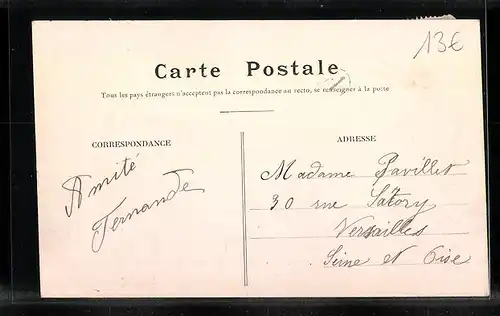 13€
Carte Postale
Tous les pays étrangers n'acceptent pas la correspondance au recto, se renseigner à la poste
CORRESPONDANCE
ADRESSE
Amitié
Fernande
Madame Pavillet
30 rue Satory
Versailles
Seine et Oise